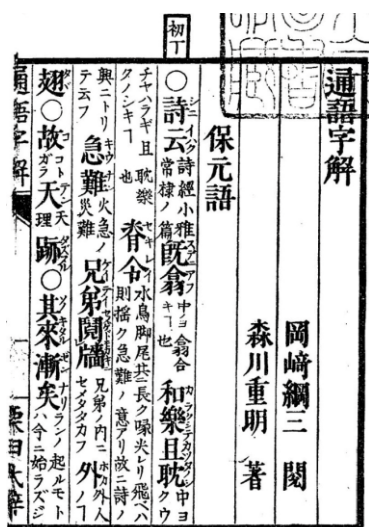 初丁
通語字解
岡﨑綱三 閲
森川重明 著
保元語
〇詩云 詩經小雅常棣ノ篇 既翕 中ヨ翕合キヿ也 和樂且耽 中ヨクウ
チヤハラギ且耽樂タノシキヿ也 脊令 水鳥脚尾共ニ長ク喙尖レリ飛ベハ則揺ク急難ノ意アリ故ニ詩ノ
興ニトリテ云フ 急難 火急ノ災難 兄弟鬩牆 兄弟ノ内ニセメタヽカフ 外 ホカ外人ノヿ
翅〇故 コトガラ 天 天理 跡〇其來漸矣 ランノ起ルモトハ今ニ始ラズジ
通語字解